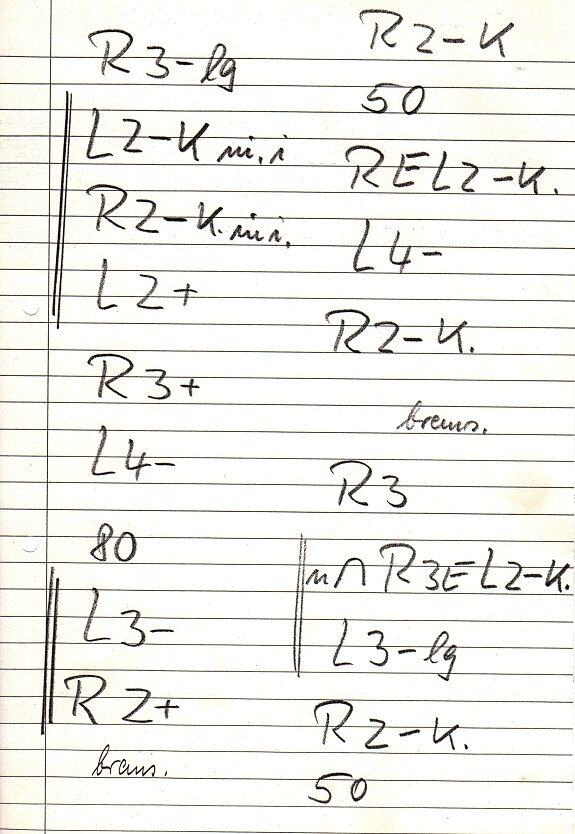 R3-lg
L2-K ni.i
R2-K. ni i.
L2+
R3+
L4-
80
L3-
R2+
brems.
R2-K
50
REL2-K.
L4-
R2-K.
brems.
R3
n∩R3EL2-K.
L3-lg
R2-K.
50